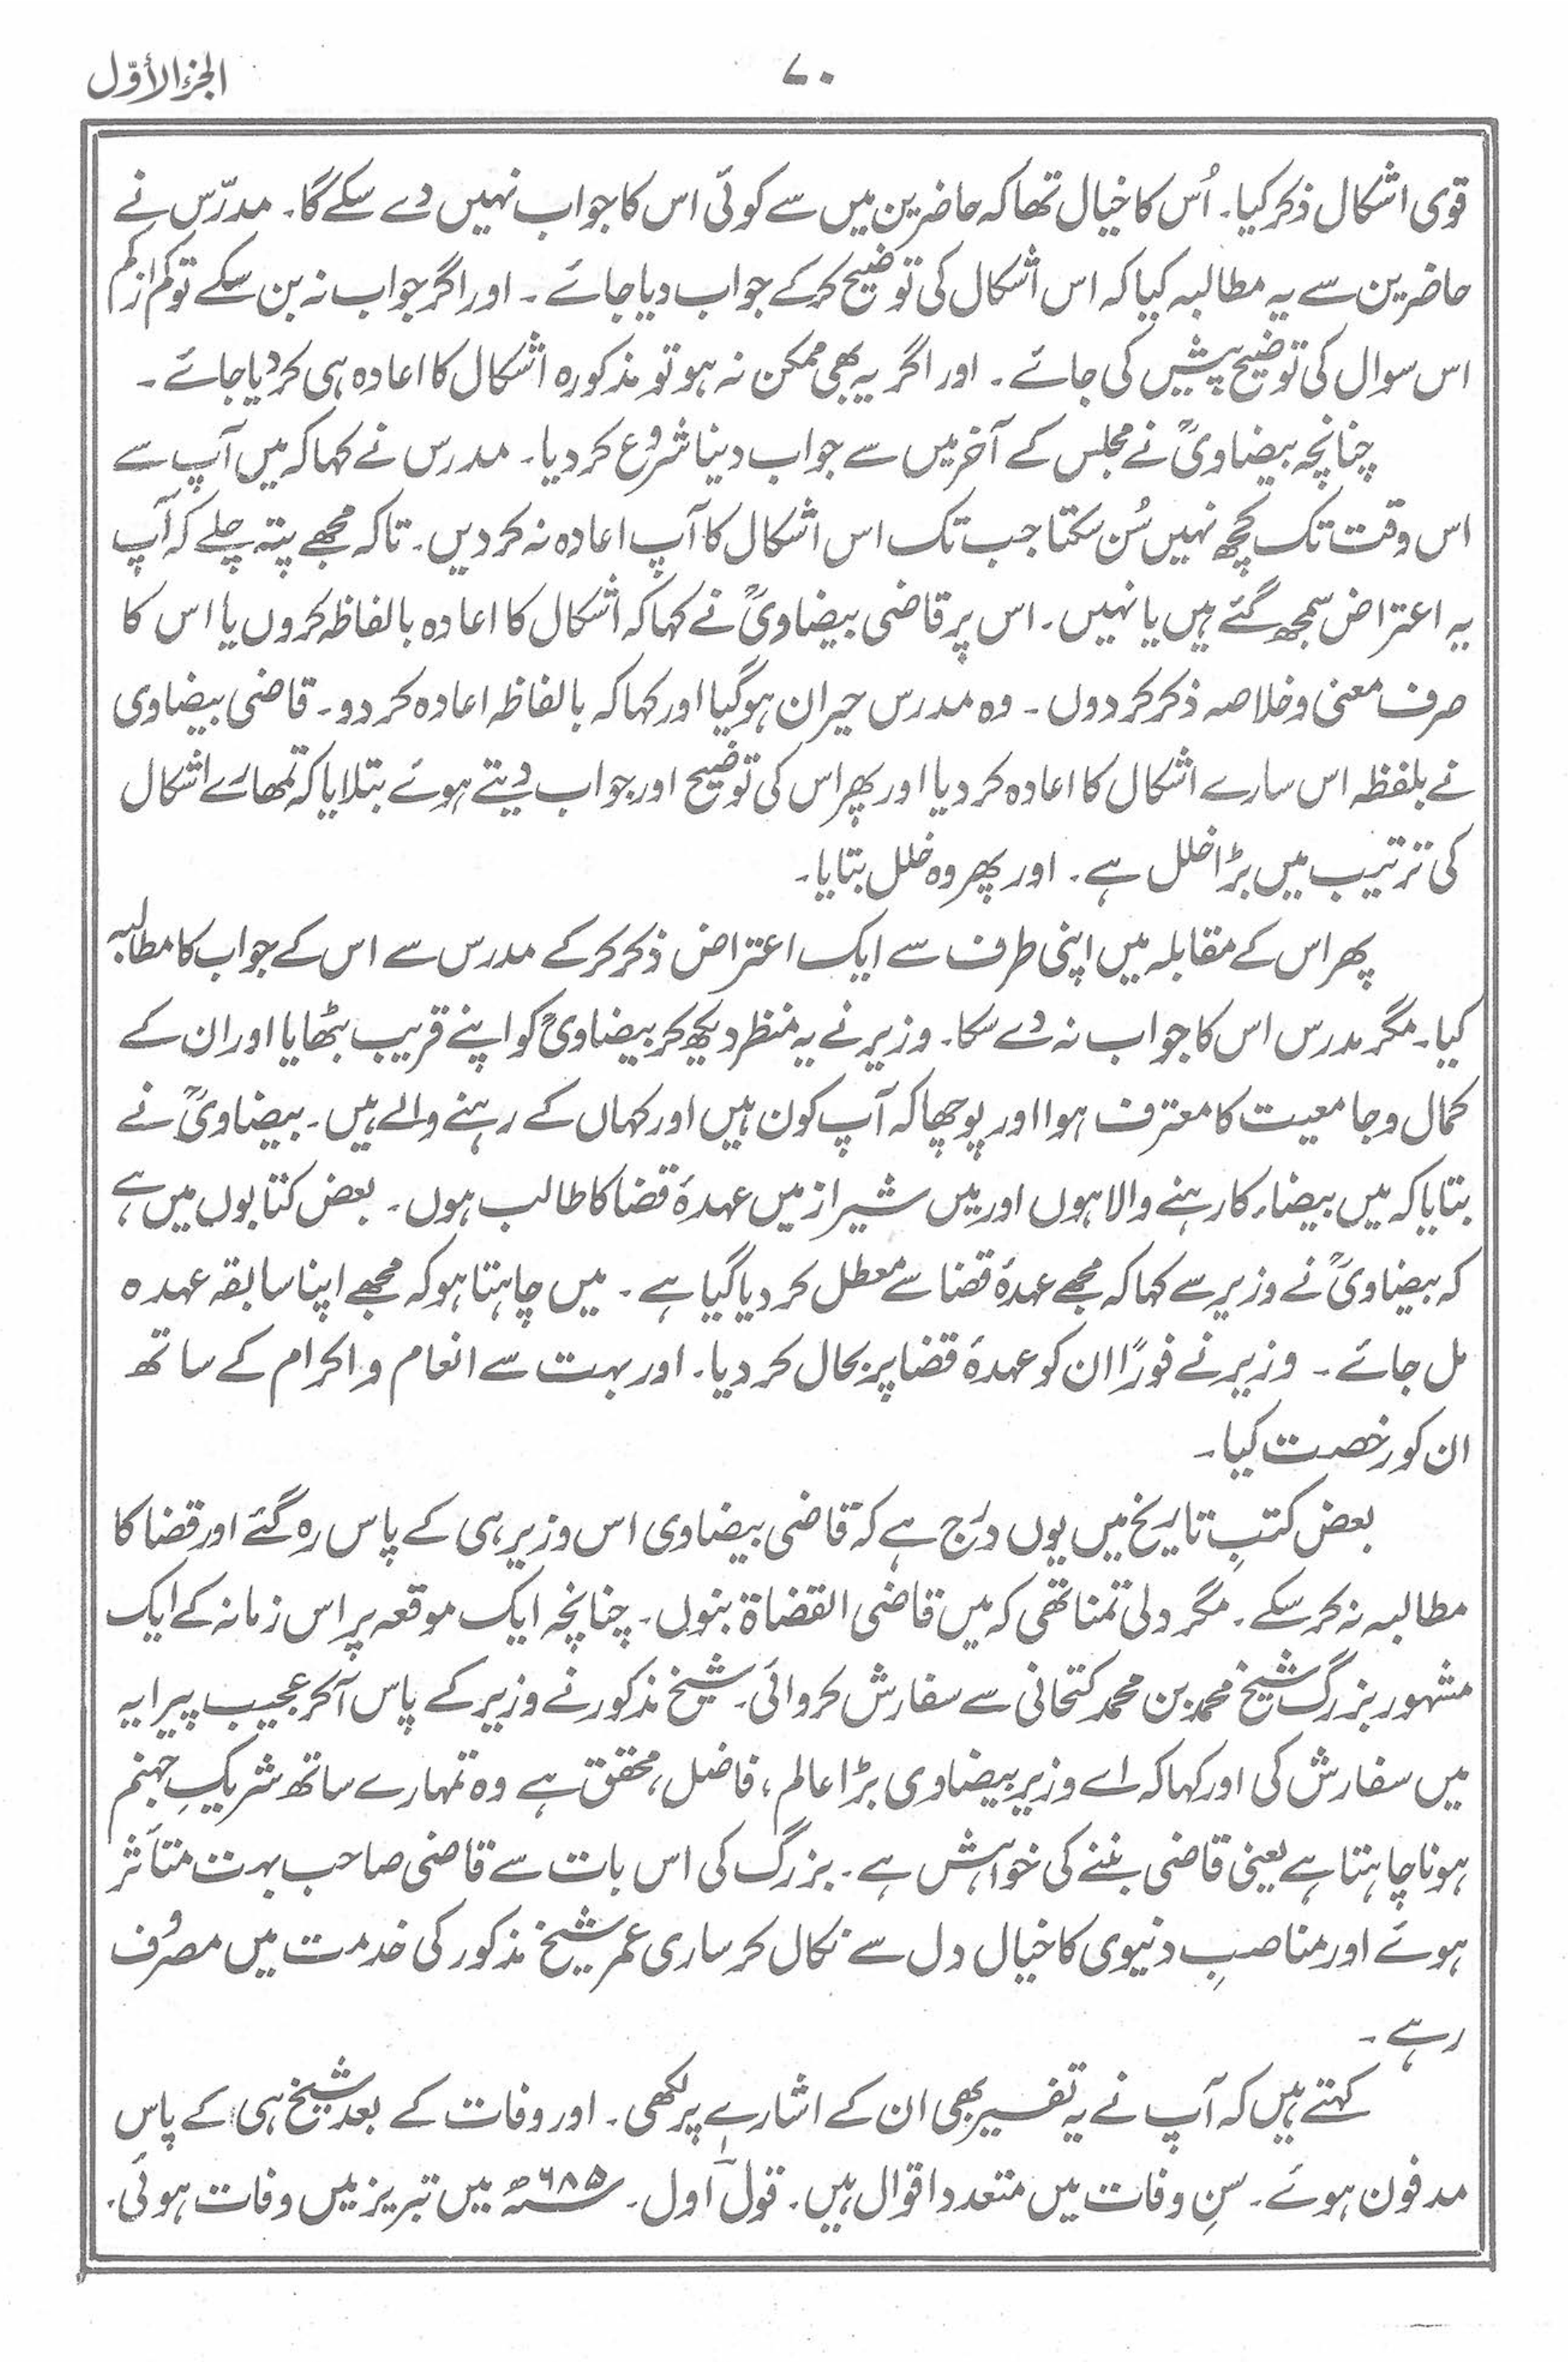 الجزء الأوّل
۷۰
قوی اشکال ذکر کیا۔ اُس کا خیال تھا کہ حاضرین میں سے کوئی اس کا جواب نہیں دے سکے گا۔ مدرّس نے
حاضرین سے یہ مطالبہ کیا کہ اس اشکال کی توضیح کرکے جواب دیا جائے ۔ اور اگر جواب نہ بن سکے تو کم از کم
اس سوال کی توضیح پیش کی جائے ۔ اور اگر یہ بھی ممکن نہ ہو تو مذکورہ اشکال کا اعادہ ہی کر دیا جائے ۔
چنانچہ بیضاویؒ نے مجلس کے آخر میں سے جواب دینا شروع کر دیا۔ مدرس نے کہا کہ میں آپ سے
اس وقت تک کچھ نہیں سُن سکتا جب تک اس اشکال کا آپ اعادہ نہ کر دیں۔ تاکہ مجھے پتہ چلے کہ آپ
یہ اعتراض سمجھ گئے ہیں یا نہیں۔ اس پر قاضی بیضاویؒ نے کہا کہ اشکال کا اعادہ بالفاظہ کروں یا اس کا
صرف معنی و خلاصہ ذکر کر دوں ۔ وہ مدرس حیران ہوگیا اور کہا کہ بالفاظہ اعادہ کر دو۔ قاضی بیضاوی
نے بلفظہ اس سارے اشکال کا اعادہ کر دیا اور پھر اس کی توضیح اور جواب دیتے ہوئے بتلایا کہ تمھارے اشکال
کی ترتیب میں بڑا خلل ہے۔ اور پھر وہ خلل بتایا۔
پھر اس کے مقابلہ میں اپنی طرف سے ایک اعتراض ذکر کرکے مدرس سے اس کے جواب کا مطالبہ
کیا۔ مگر مدرس اس کا جواب نہ دے سکا۔ وزیر نے یہ منظر دیکھ کر بیضاویؒ کو اپنے قریب بٹھایا اور ان کے
کمال و جامعیت کا معترف ہوا اور پوچھا کہ آپ کون ہیں اور کہاں کے رہنے والے ہیں۔ بیضاویؒ نے
بتایا کہ میں بیضاء کا رہنے والا ہوں اور میں شیراز میں عہدۂ قضا کا طالب ہوں۔ بعض کتابوں میں ہے
کہ بیضاویؒ نے وزیر سے کہا کہ مجھے عہدۂ قضا سے معطل کر دیا گیا ہے ۔ میں چاہتا ہو کہ مجھے اپنا سابقہ عہدہ
مل جائے ۔ وزیر نے فورًا ان کو عہدۂ قضا پر بحال کر دیا۔ اور بہت سے انعام و اکرام کے ساتھ
ان کو رخصت کیا۔
بعض کتبِ تاریخ میں یوں درج ہے کہ قاضی بیضاوی اس وزیر ہی کے پاس رہ گئے اور قضا کا
مطالبہ نہ کر سکے ۔ مگر دلی تمنا تھی کہ میں قاضی القضاۃ بنوں۔ چنانچہ ایک موقعہ پر اس زمانہ کے ایک
مشہور بزرگ شیخ محمد بن محمد کتحانی سے سفارش کروائی۔ شیخ مذکور نے وزیر کے پاس آکر عجیب پیرایہ
میں سفارش کی اور کہا کہ اے وزیر بیضاوی بڑا عالم ، فاضل ، محقق ہے وہ تمہارے ساتھ شریکِ جہنم
ہونا چاہتا ہے یعنی قاضی بننے کی خواہش ہے۔ بزرگ کی اس بات سے قاضی صاحب بہت متأثر
ہوئے اور مناصبِ دنیوی کا خیال دل سے نکال کر ساری عمر شیخ مذکور کی خدمت میں مصروف
رہے ۔
کہتے ہیں کہ آپ نے یہ تفسیر بھی ان کے اشارے پر لکھی۔ اور وفات کے بعد شیخ ہی کے پاس
مدفون ہوئے ۔ سنِ وفات میں متعدد اقوال ہیں۔ قول اول ۔ ۶۸۵ھ میں تبریز میں وفات ہوئی۔